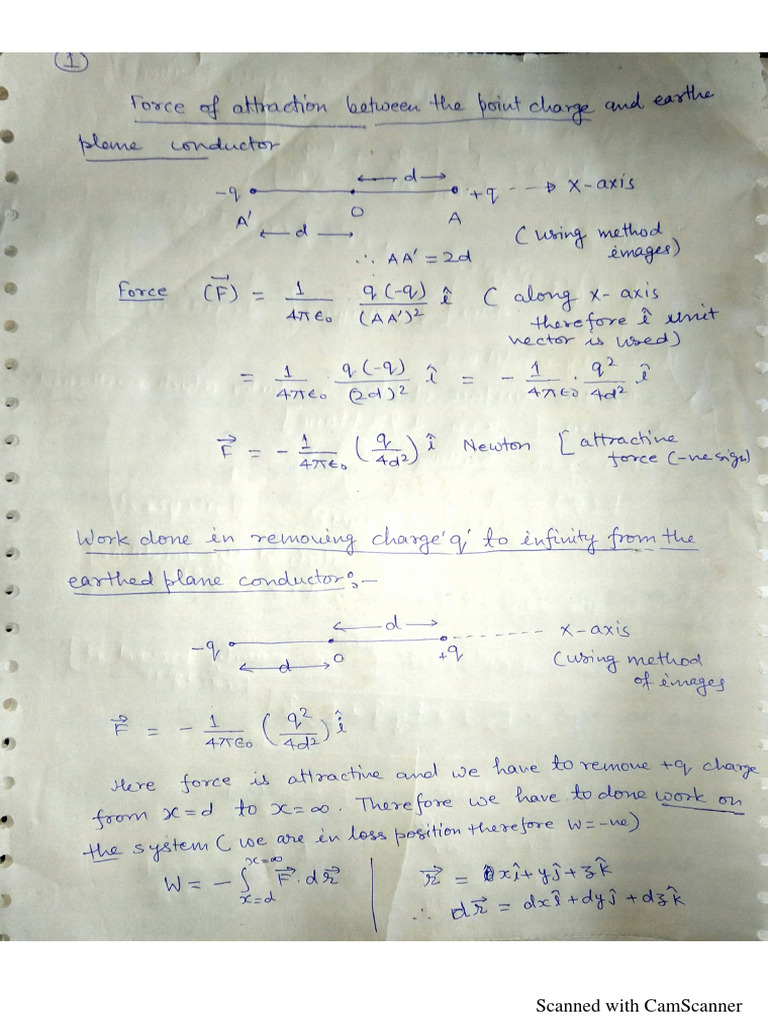 1
Force of attraction between the point charge and earthe
plane conductor
← d →
-q +q --→ X-axis
A' O A
← d → (using method
images)
∴ AA' = 2d
Force (F⃗) = 1/4πϵ₀ q(-q)/(AA')² î ( along x-axis
therefore î unit
vector is used)
= 1/4πϵ₀ q(-q)/(2d)² î = - 1/4πϵ₀ · q²/4d² î
F⃗ = - 1/4πϵ₀ (q/4d²) î Newton [attractive
force (-ve sign)
Work done in removing charge 'q' to infinity from the
earthed plane conductor:-
← d →
-q O +q ------- x-axis
← d → (using method
of images
F⃗ = - 1/4πϵ₀ (q²/4d²) î
Here force is attractive and we have to remove +q charge
from x=d to x=∞. Therefore we have to done work on
the system ( we are in loss position therefore W=-ve)
W = - ∫_{x=d}^{x=∞} F⃗·dr⃗ r⃗ = xî+yĵ+zk̂
∴ dr⃗ = dxî+dyĵ+dzk̂
Scanned with CamScanner